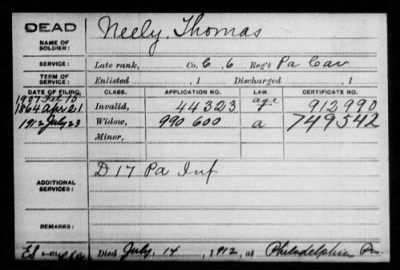 DEAD
NAME OF SOLDIER: Neely, Thomas
SERVICE: Late rank, Co. C, 6 Reg't Pa Cav
TERM OF SERVICE: Enlisted , 1 Discharged , 1
DATE OF FILING. CLASS. APPLICATION NO. LAW. CERTIFICATE NO.
1907 Feb 15
1864 Apr 21 Invalid, 44323 age 912990
1912 July 23 Widow, 990600 a 749542
Minor,
ADDITIONAL SERVICES: D 17 Pa Inf
REMARKS:
Died July 14, 1912, at Philadelphia Pa.